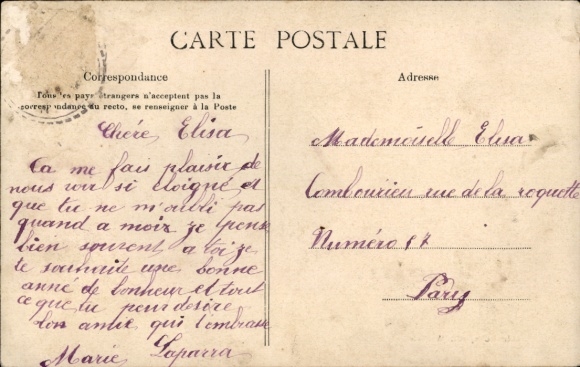 CARTE POSTALE
Correspondance
Tous les pays étrangers n'acceptent pas la
correspondance au recto, se renseigner à la Poste
Adresse
Chére Elisa
Ca me fais plaisir de
nous voir si éloigné et
que tu ne m'oubli pas
quand a moiz ze pense
bien souvent a toi ze
te souhaite une bonne
anné de bonheur et tout
ce que tu peux desire
ton amie qui t'embrasse
Marie Laparra
Mademoiselle Elisa
rue de la roquette
Numéro 17
Paris